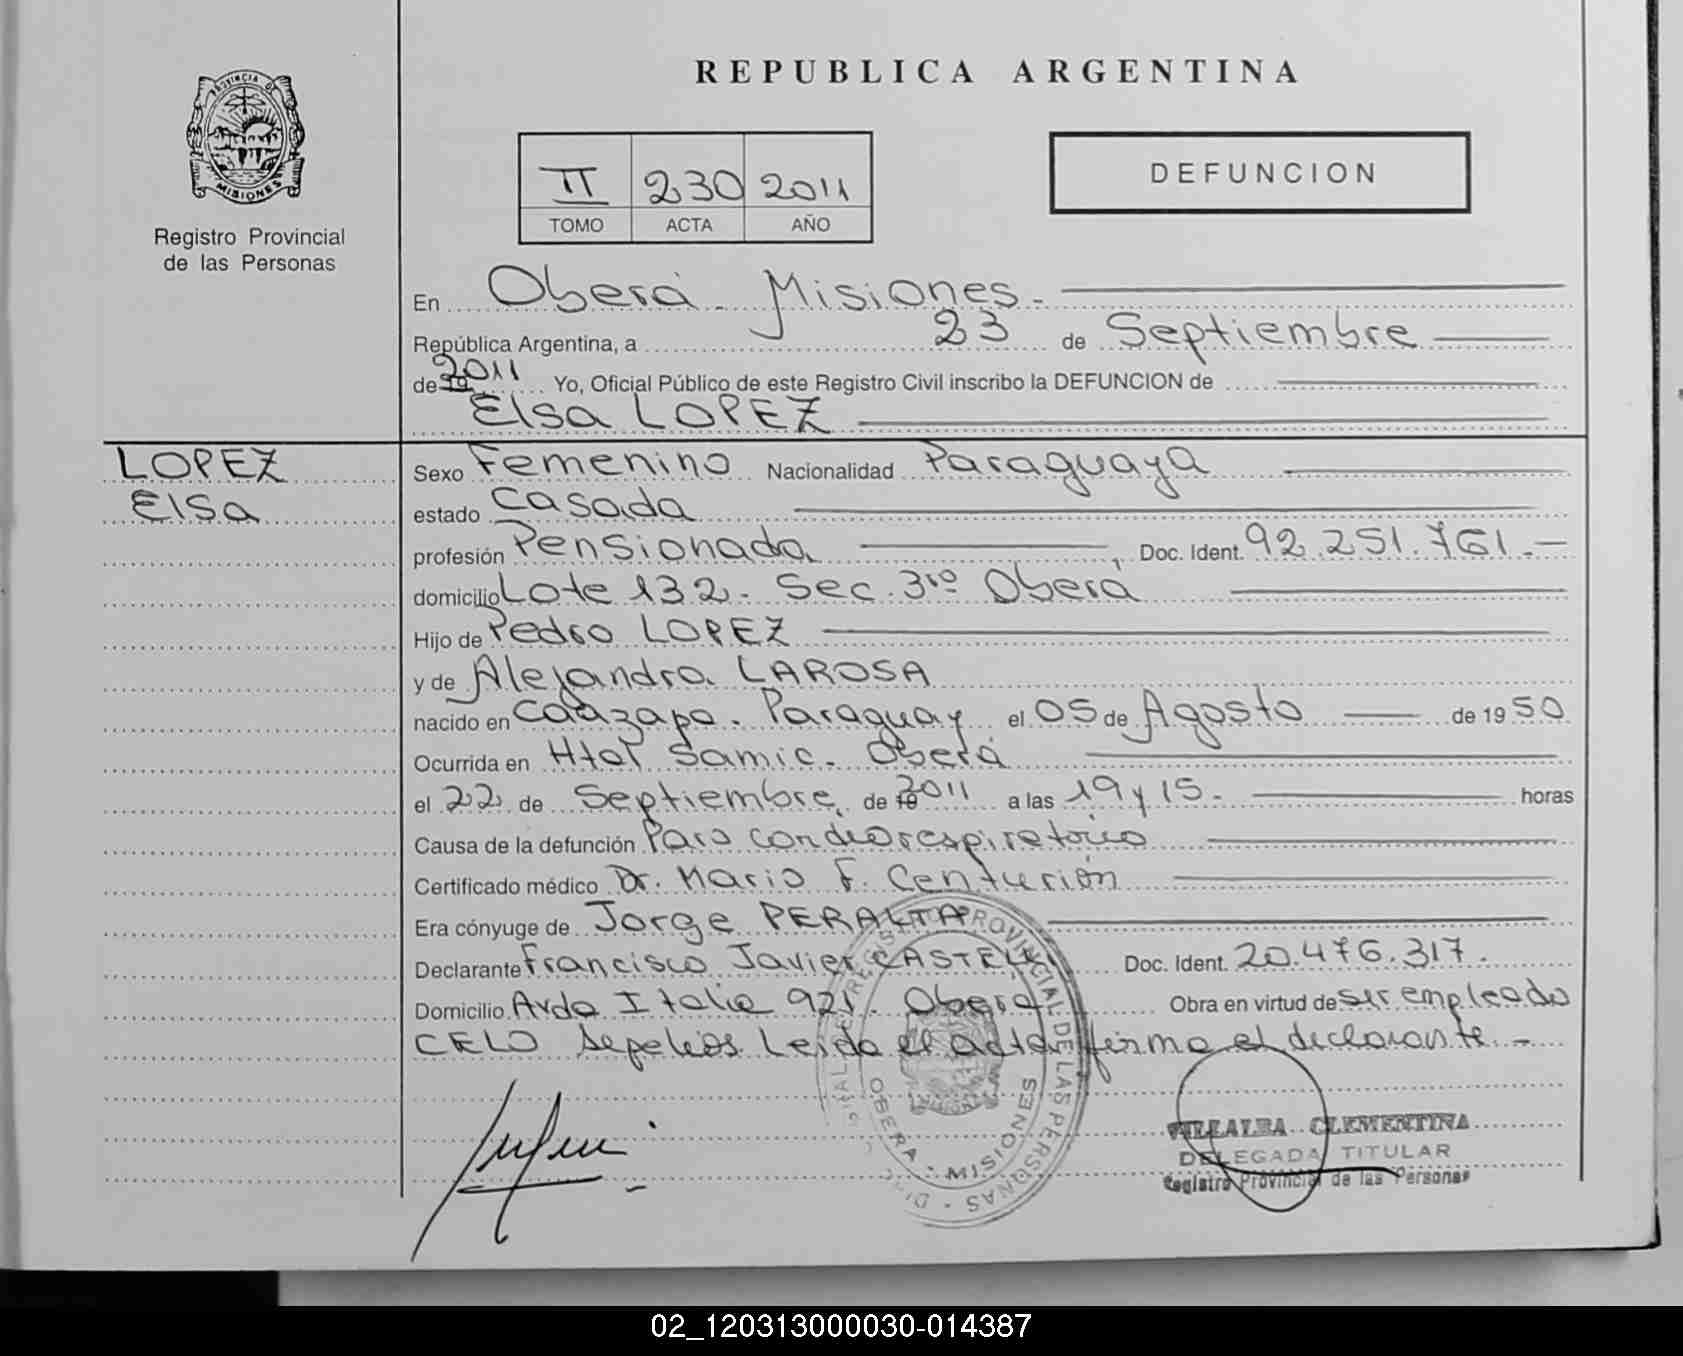 REPUBLICA ARGENTINA
PROVINCIA DE
MISIONES
Registro Provincial
de las Personas
II 230 2011
TOMO ACTA AÑO
DEFUNCION
En Oberá - Misiones -
República Argentina, a 23 de Septiembre
de 19 2011 Yo, Oficial Público de este Registro Civil inscribo la DEFUNCION de
Elsa LOPEZ
LOPEZ
Elsa
Sexo Femenino Nacionalidad Paraguaya
estado Casada
profesión Pensionada, Doc. Ident. 92.251.761.-
domicilio Lote 132. Sec. 3ra Oberá
Hijo de Pedro LOPEZ
y de Alejandra LAROSA
nacido en Caazapa. Paraguay el 05 de Agosto de 1950
Ocurrida en Htal Samic. Oberá
el 22 de Septiembre de 19 2011 a las 19 y 15. horas
Causa de la defunción Paro cardiorespiratorio
Certificado médico Dr. Mario F. Centurión
Era cónyuge de Jorge PERALTA
Declarante Francisco Javier Doc. Ident. 20.476.317.
Domicilio Avda Italia 921. Oberá Obra en virtud de ser empleado
CELO Sepelios. Leida el acta firma el declarante.-
REGISTRO PROVINCIAL DE LAS PERSONAS
OBERA - MISIONES
VILLALBA CLEMENTINA
DELEGADA TITULAR
Registro Provincial de las Personas
02_120313000030-014387